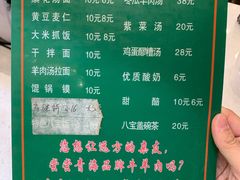 炮仗面 10元8元
黄豆麦仁 10元 8元
大米抓饭 10元 8元
干拌面 10元
羊肉汤拉面 10元
馄锅馍 10元
羊肉汤 38元
紫菜汤 20元
鸡蛋醪糟汤 28元
优质酸奶 6元
甜醅 10元
八宝盖碗茶 20元
您想让远方的亲友，
尝尝青海品牌牛羊肉吗？